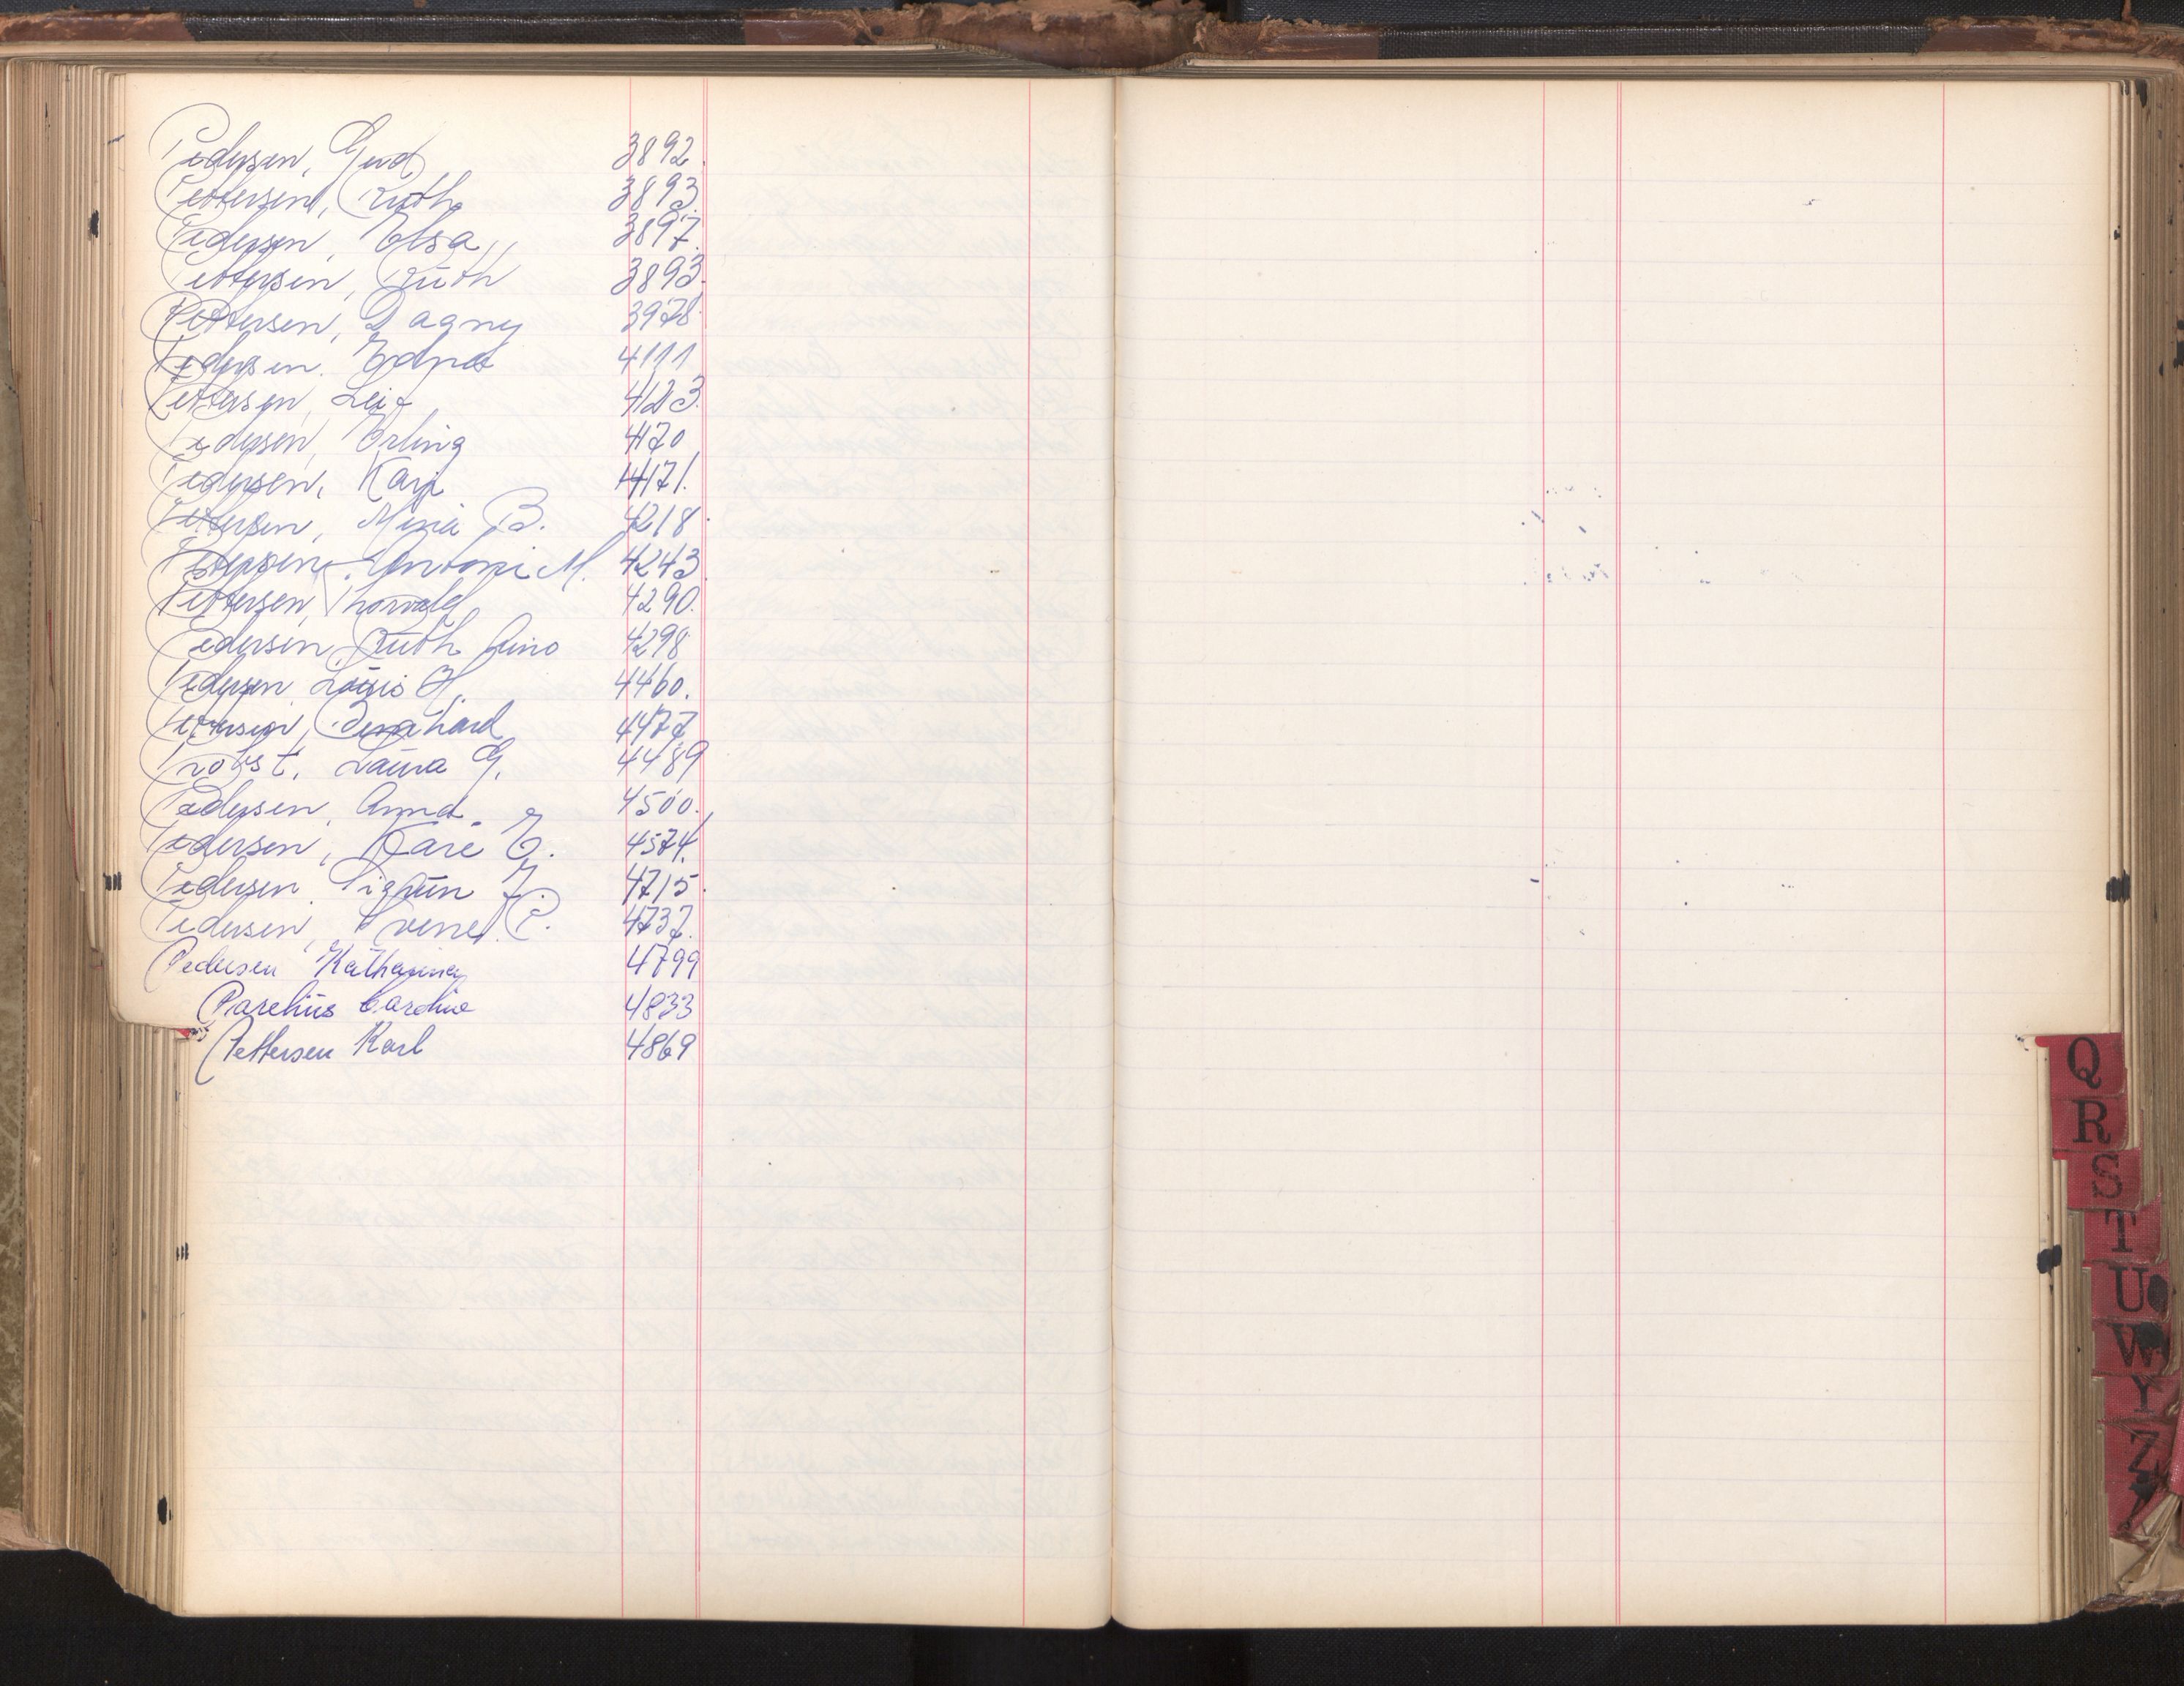 Pedersen, Gerd 3892.
Pettersen, Ruth 3893.
Pedersen, Elsa 3897.
Pettersen, Ruth 3893.
Pettersen, Dagny 3978
Pedersen. Edna 4111
Pettersen, Leif 4123.
Pedersen, Erling 4170
Pedersen, Kari 4171.
Pettersen, Mina B. 4218.
M. 4243.
Pettersen, Thorvald 4290.
Pedersen, Ruth Aino 4298
Pedersen H. 4460.
Pettersen, Bernhard 4477
Probst, Laura G. 4489
Pedersen, Anna. 4500.
Pedersen, Kåre E. 4574.
Pedersen, Sigrun J. 4715.
Pedersen, P. 4737.
Pedersen Katharina 4799
Parelius 4833
Pettersen Karl 4869
Q
R
S
T
U
W
Y
Z